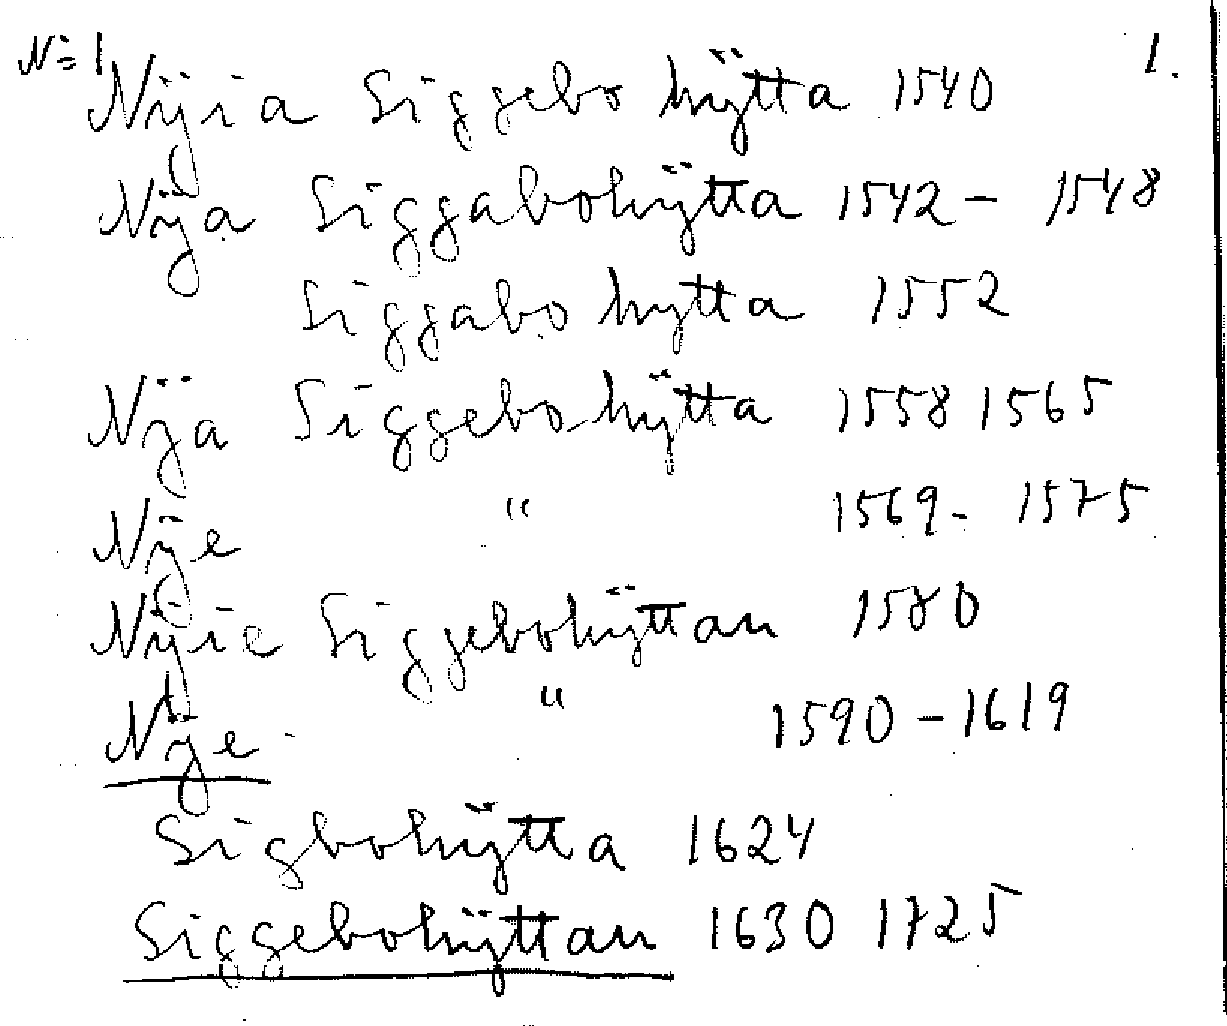 N:= 1 1.
Nÿia Siggebo hÿtta 1540
Nÿa Siggabohÿtta 1542 - 1548
Siggabo hytta 1552
Nÿa Siggebo hÿtta 1558 1565
Nÿe " 1569 - 1575
Nÿie Siggebohÿttan 1580
Nÿe " 1590 - 1619
Sigbohÿtta 1624
Siggebohÿttan 1630 1725